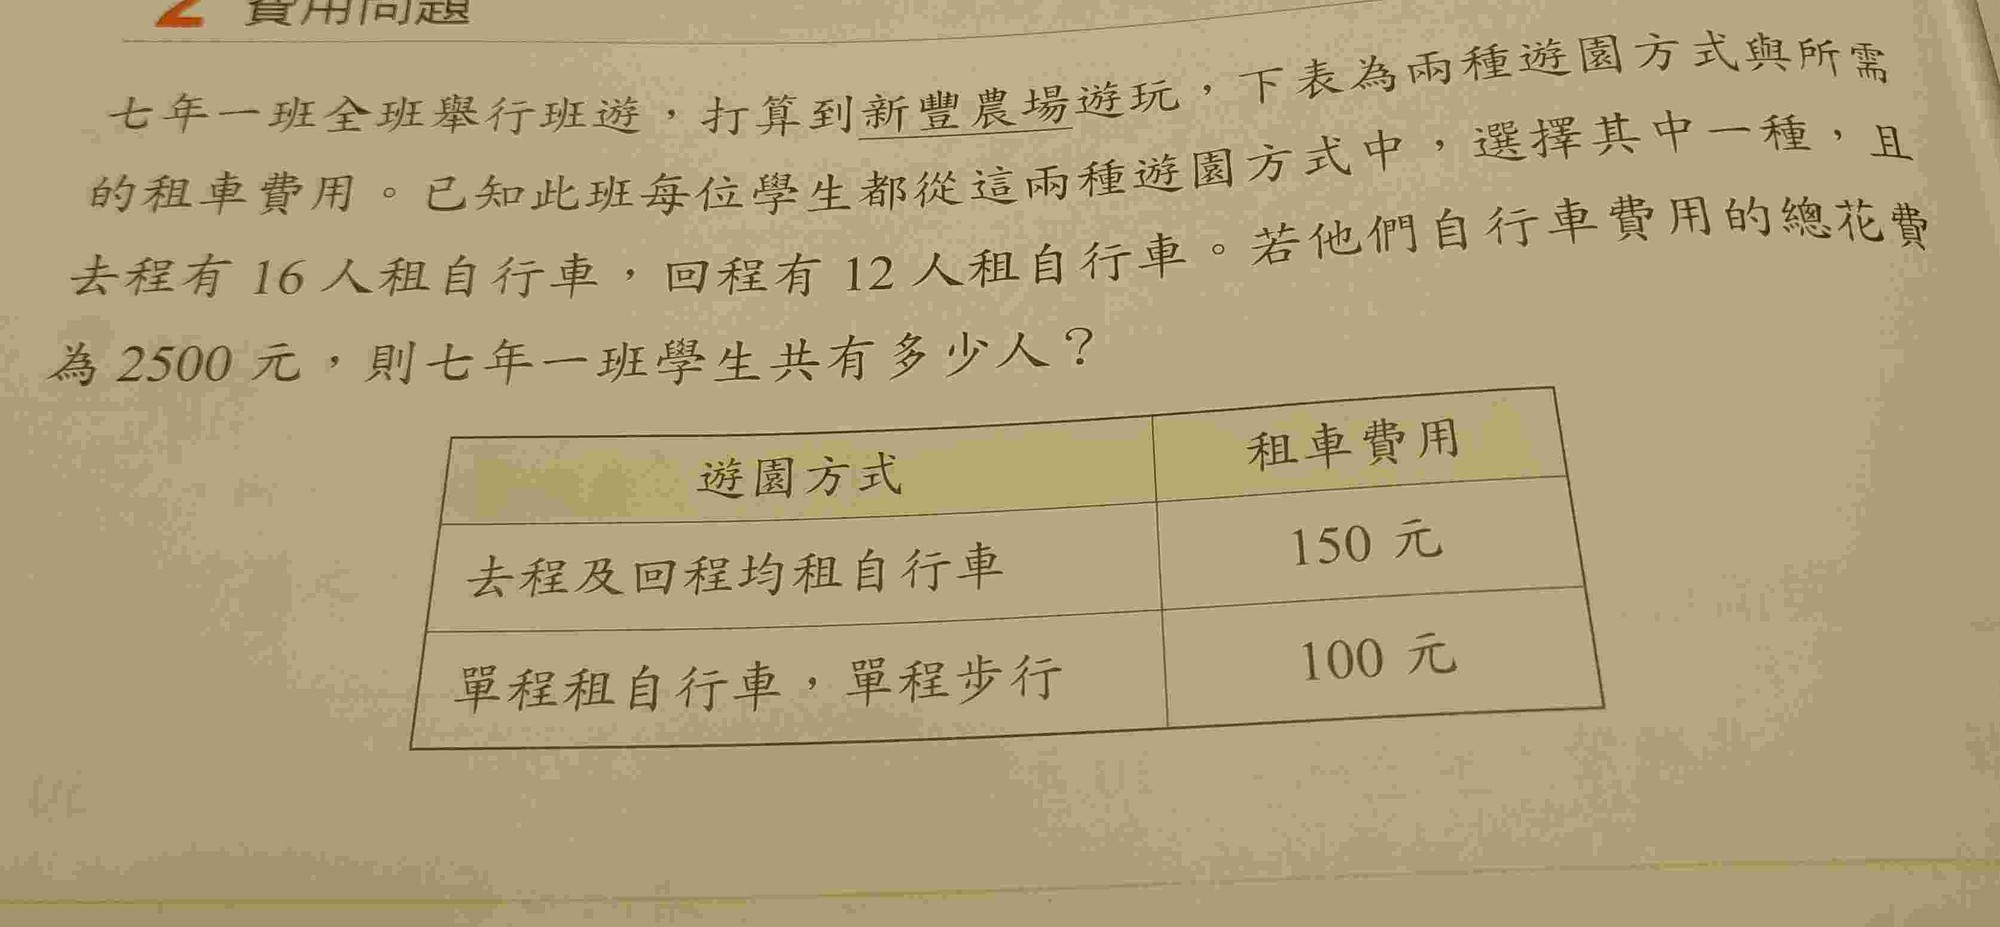 2 費用問題
七年一班全班舉行班遊，打算到新豐農場遊玩，下表為兩種遊園方式與所需
的租車費用。已知此班每位學生都從這兩種遊園方式中，選擇其中一種，且
去程有 16 人租自行車，回程有 12 人租自行車。若他們自行車費用的總花費
為 2500 元，則七年一班學生共有多少人？
遊園方式 租車費用
去程及回程均租自行車 150 元
單程租自行車，單程步行 100 元